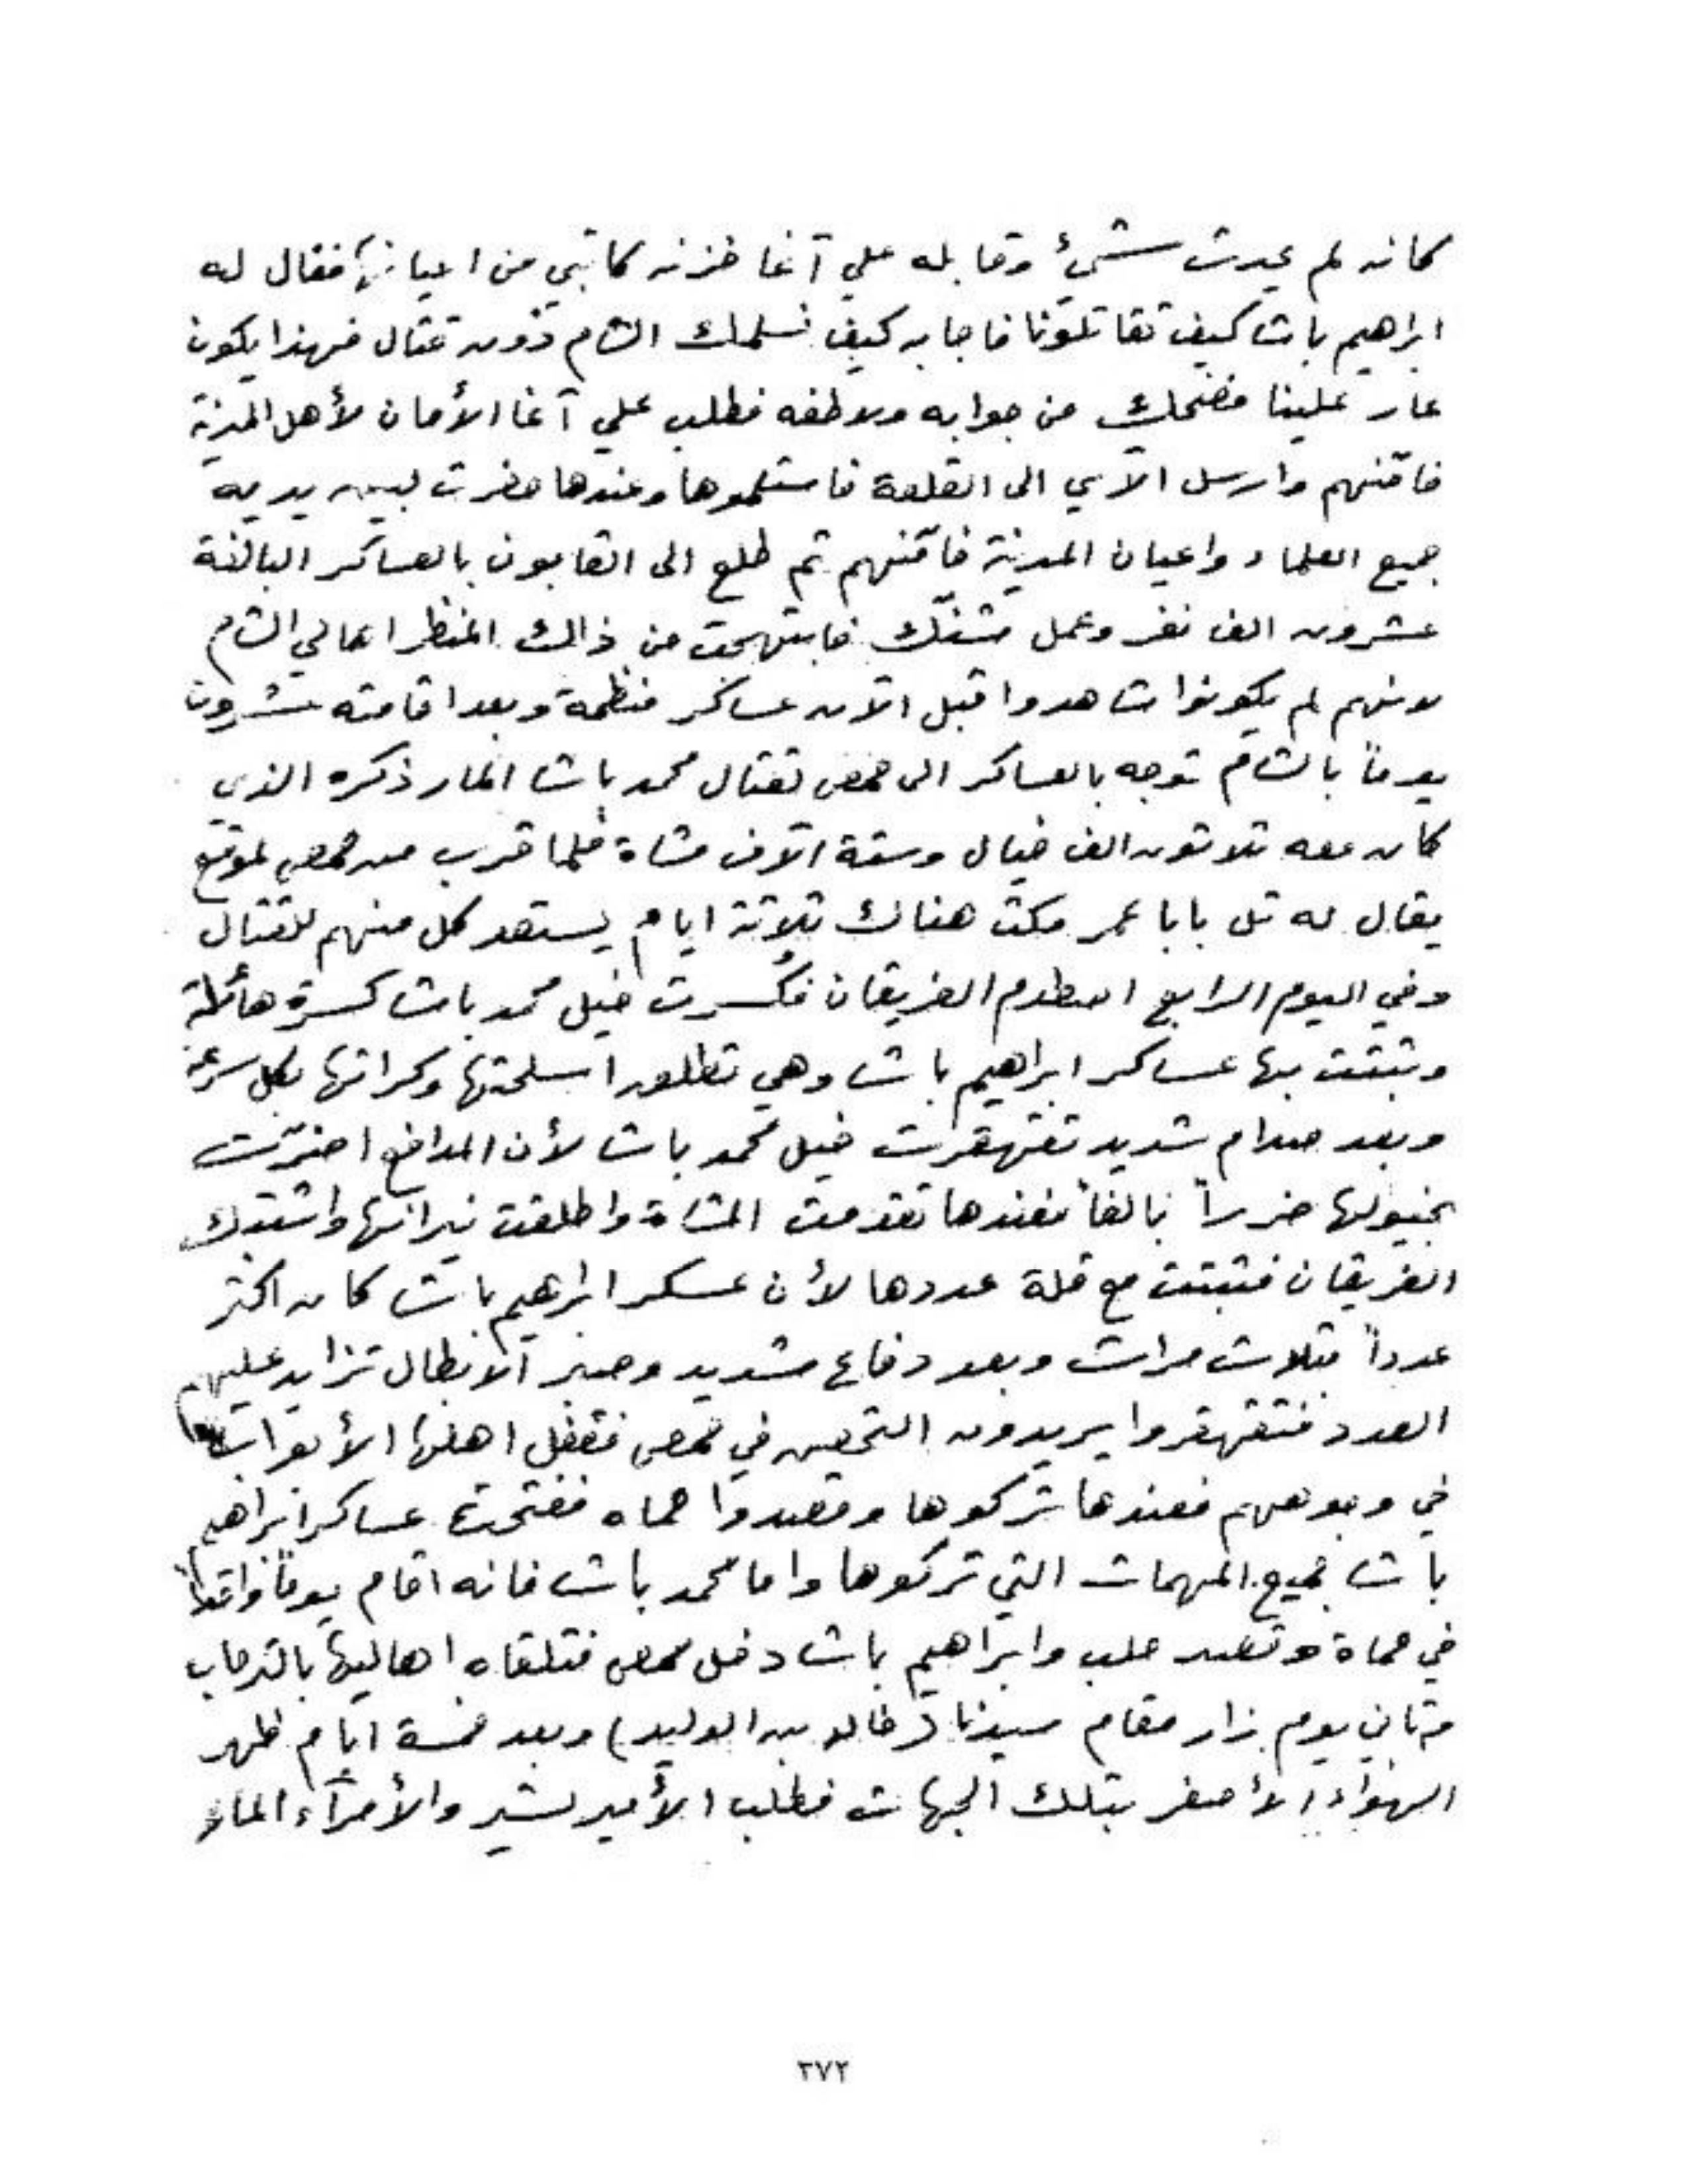 كانه لم يحدث شيئ وقابله علي آغا خزنه كاتبي من اعيانها فقال له
ابراهيم باشا كيف تقاتلونا فاجابه كيف نسلمك الشام دون قتال فهذا يكون
عار علينا فضحك من جوابه ولاطفه فطلب علي آغا الأمان لأهل المدينة
فامّنهم وارسل الآي الى القلعة فاستلموها وعندها حضرت لبين يديه
جميع العلماء واعيان المدينة فامّنهم ثم طلع الى القابون بالعساكر البالغة
عشرون الف نفر وعمل شنّك فابتهجت من ذالك المنظر اهالي الشام
لانهم لم يكونوا شاهدوا قبل الآن عساكر منظمة وبعد اقامته عشرون
يوماً بالشام توجه بالعساكر الى حمص لقتال محمد باشا المار ذكره الذي
كان معه ثلاثون الف خيال وستة آلاف مشاة فلما قرب من حمص لموقع
يقال له تل بابا عمر مكث هناك ثلاثة ايام يستعد كل منهم للقتال
وفي اليوم الرابع اصطدم الفريقان فكُسرت خيل محمد باشا كسرة هائلة
وثبتت بها عساكر ابراهيم باشا وهي تطلق اسلحتها وكراتها بكل سرعة
وبعد صدام شديد تقهقرت خيل محمد باشا لأن المدافع اضرّت
بخيولها ضرراً بالغاً فعندها تقدمت المشاة واطلقت نيرانها واشتبك
الفريقان فثبتت مع قلة عددها لأن عسكر ابراهيم باشا كان اكثر
عدداً بثلاث مرات وبعد دفاع شديد وصبر الابطال تزايد عليهم
العدد فتقهقروا يريدون التحصن في حمص فقفل اهلها الأبواب
في وجوههم فعندها تركوها وقصدوا حماه ففتحت عساكر ابراهيم
باشا جميع المهمات التي تركوها واما محمد باشا فانه اقام يوماً واحداً
في حماة وقصد حلب وابراهيم باشا دخل حمص فتلقاه اهاليها بالترحاب
وثاني يوم زار مقام سيدنا (خالد بن الوليد) وبعد خمسة ايام ظهر
الهواء الأصفر بتلك الجهات فطلب الأمير بشير والأمرآء المار
٢٧٢